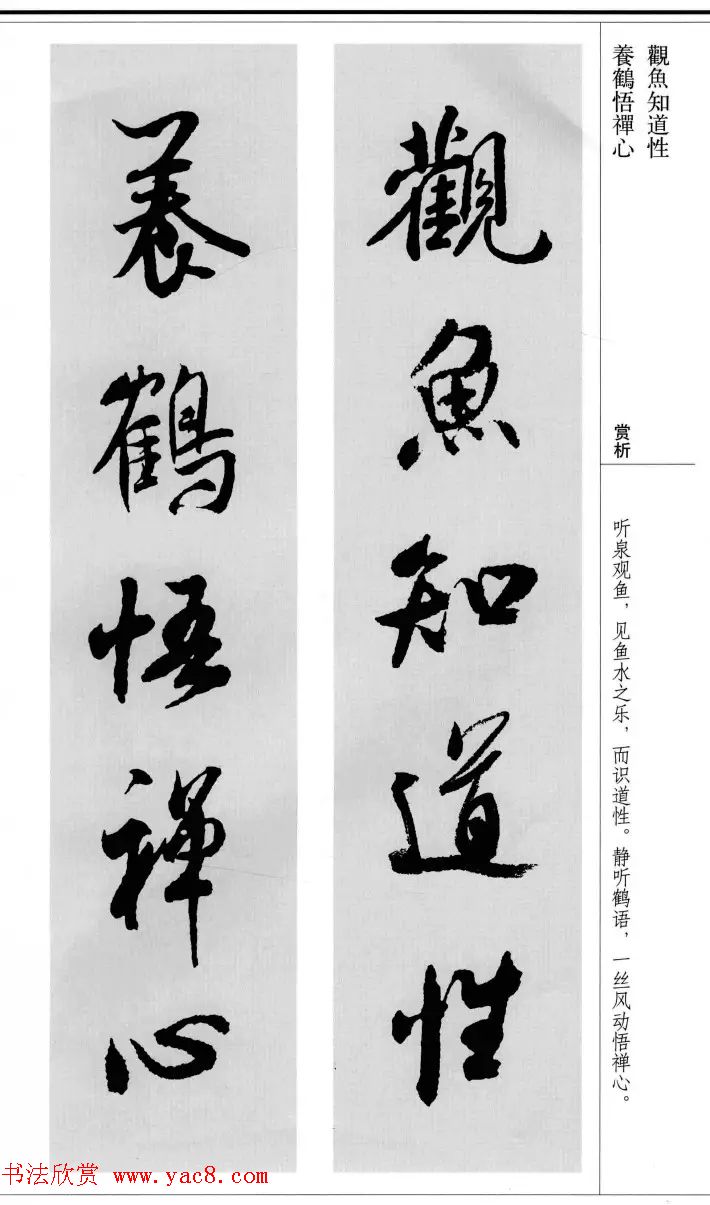 觀魚知道性
養鶴悟禪心
觀魚知道性
養鶴悟禪心
赏析
听泉观鱼，见鱼水之乐，而识道性。静听鹤语，一丝风动悟禅心。
书法欣赏 www.yac8.com